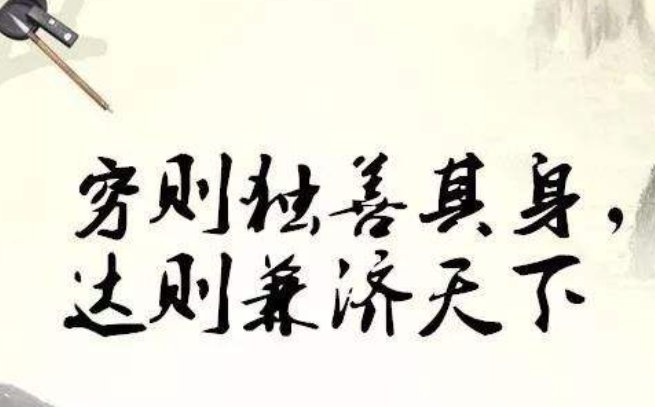 穷则独善其身，
达则兼济天下